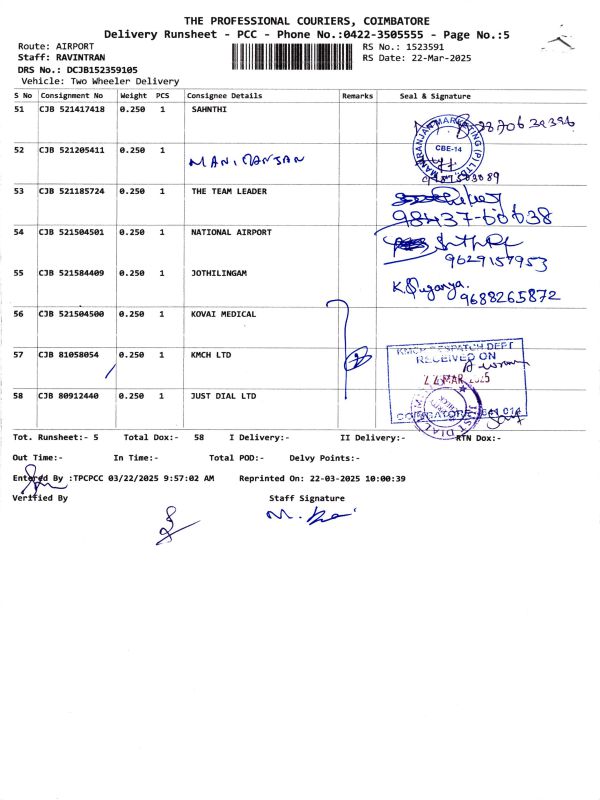 THE PROFESSIONAL COURIERS, COIMBATORE
Delivery Runsheet - PCC - Phone No.:0422-3505555 - Page No.:5
Route: AIRPORT RS No.: 1523591
Staff: RAVINTRAN RS Date: 22-Mar-2025
DRS No.: DCJB152359105
Vehicle: Two Wheeler Delivery
S No Consignment No Weight PCS Consignee Details Remarks Seal & Signature
51 CJB 521417418 0.250 1 SAHNTHI
MANIRANJAN MARKETING (P) LTD. CBE-14
52 CJB 521205411 0.250 1 MANIRANJAN
53 CJB 521185724 0.250 1 THE TEAM LEADER
98437-60638
54 CJB 521504501 0.250 1 NATIONAL AIRPORT
9629157953
55 CJB 521584409 0.250 1 JOTHILINGAM
K. Suganya.
9688265872
56 CJB 521504500 0.250 1 KOVAI MEDICAL
57 CJB 81058054 0.250 1 KMCH LTD
KMCH DESPATCH DEPT
RECEIVED ON
MAR 2025
COIMBATORE - 641 014
58 CJB 80912440 0.250 1 JUST DIAL LTD
JUST DIAL
Tot. Runsheet:- 5 Total Dox:- 58 I Delivery:- II Delivery:- RTN Dox:-
Out Time:- In Time:- Total POD:- Delvy Points:-
Entered By :TPCPCC 03/22/2025 9:57:02 AM Reprinted On: 22-03-2025 10:00:39
Verified By Staff Signature